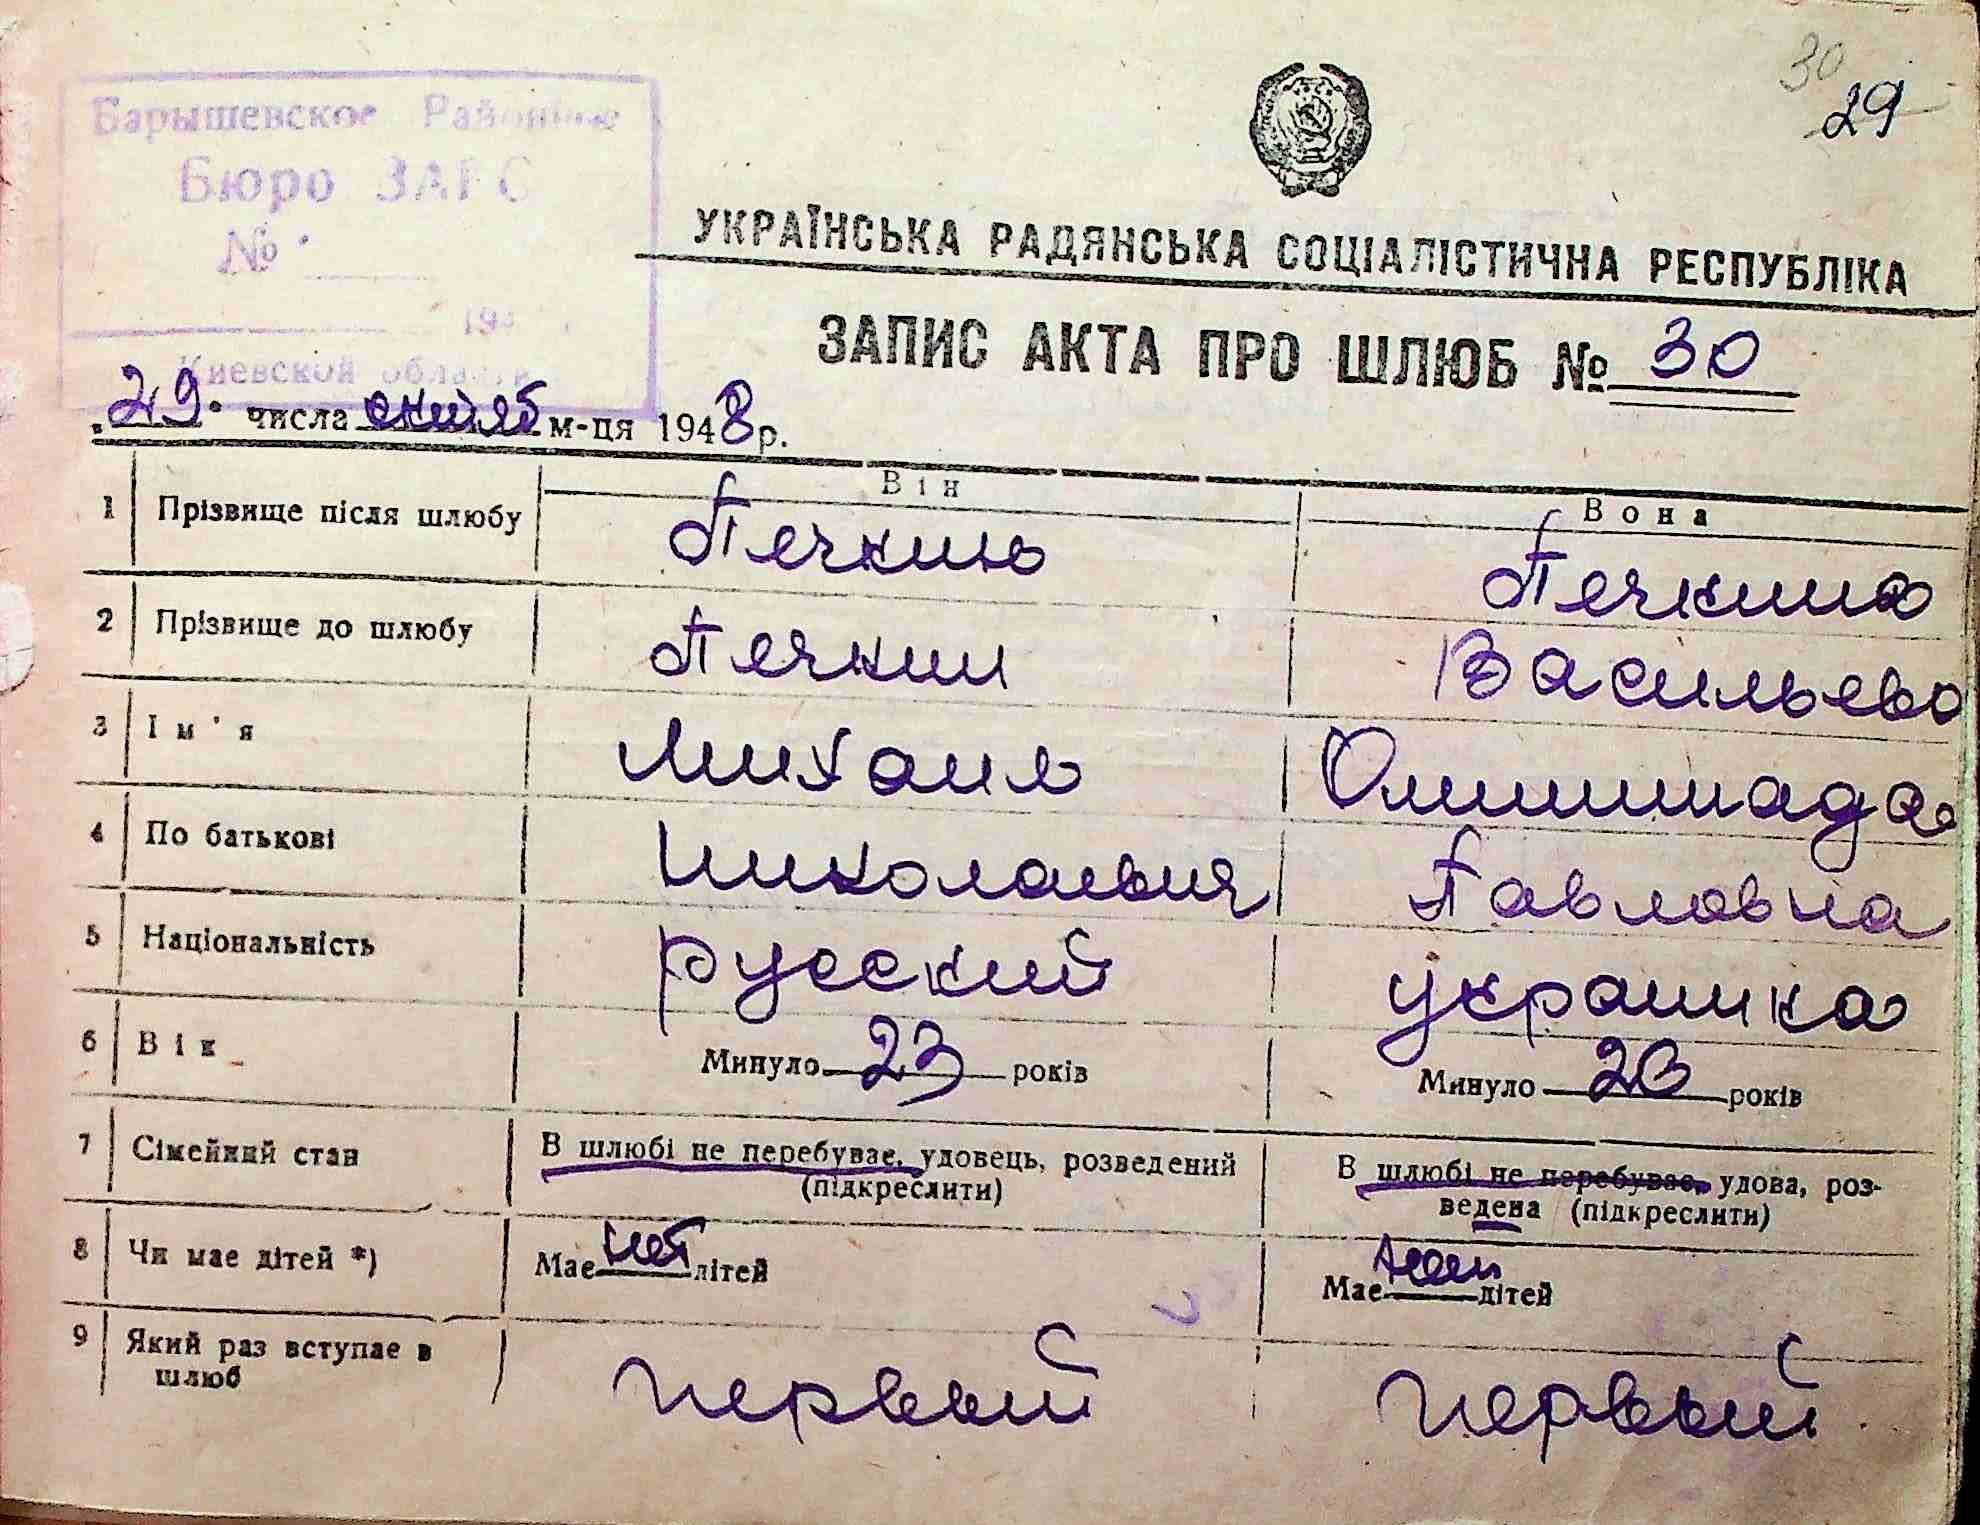 30
29
Барышевское Районное
Бюро ЗАГС
№
194
Киевской области
УКРАЇНСЬКА РАДЯНСЬКА СОЦІАЛІСТИЧНА РЕСПУБЛІКА
ЗАПИС АКТА ПРО ШЛЮБ № 30
29 числа октяб м-ця 1948 р.
Він Вона
1 Прізвище після шлюбу Печкин Печкина
2 Прізвище до шлюбу Печкин Васильева
3 Ім'я Михаил
4 По батькові Николаевич Павловна
5 Національність русский украинка
6 Вік Минуло 23 років Минуло 20 років
7 Сімейний стан В шлюбі не перебуває, удовець, розведений (підкреслити) В шлюбі не перебуває, удова, роз-
ведена (підкреслити)
8 Чи має дітей *) Має нет дітей Має дітей
9 Який раз вступає в шлюб первый первый